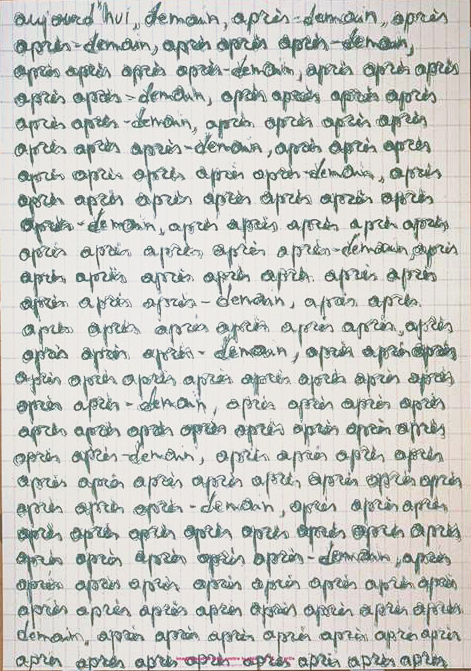 aujourd'hui, demain, après-demain, après
après-demain, après après après-demain,
après après après après-demain, après après après
après après-demain, après après après après
après après-demain, après après après après
après après après-demain, après après après
après après après après après-demain, après
après après après après après après après
après-demain, après après après après après
après après après après après-demain, après
après après après après après après après
après après après-demain, après après
après après après après après après, après
après après après-demain, après après après
après après après après après après après après
après après-demain, après après après après
après après après après après après après après
après après-demain, après après après après
après après après après après après après après
après après après-demain, après après après
après après après après après après après après
après après après après après-demain, après
après après après après après après après après
après après après après après après après après
demain, après après après après après après après
après après après après après après après après